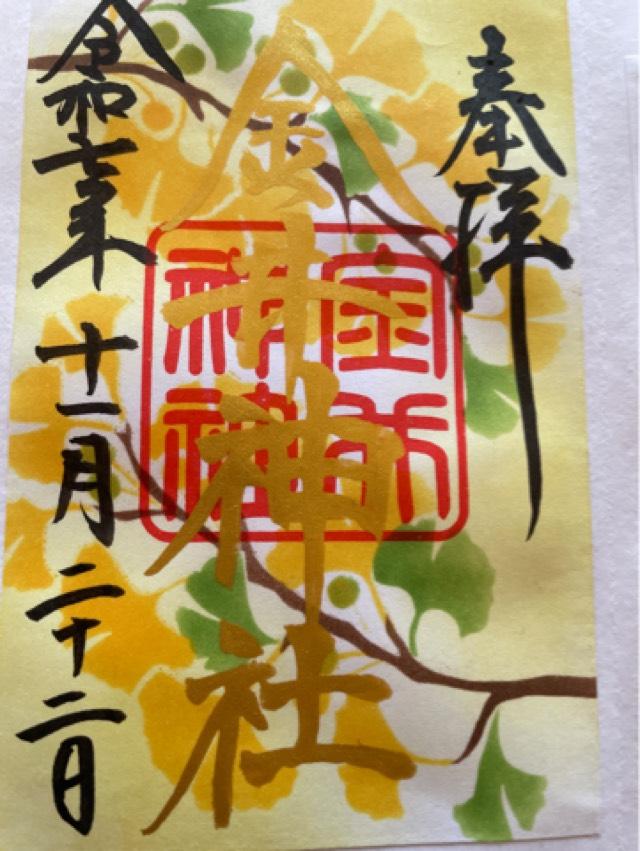 奉拝
金井神社
金井
神社
令和七年十一月二十二日